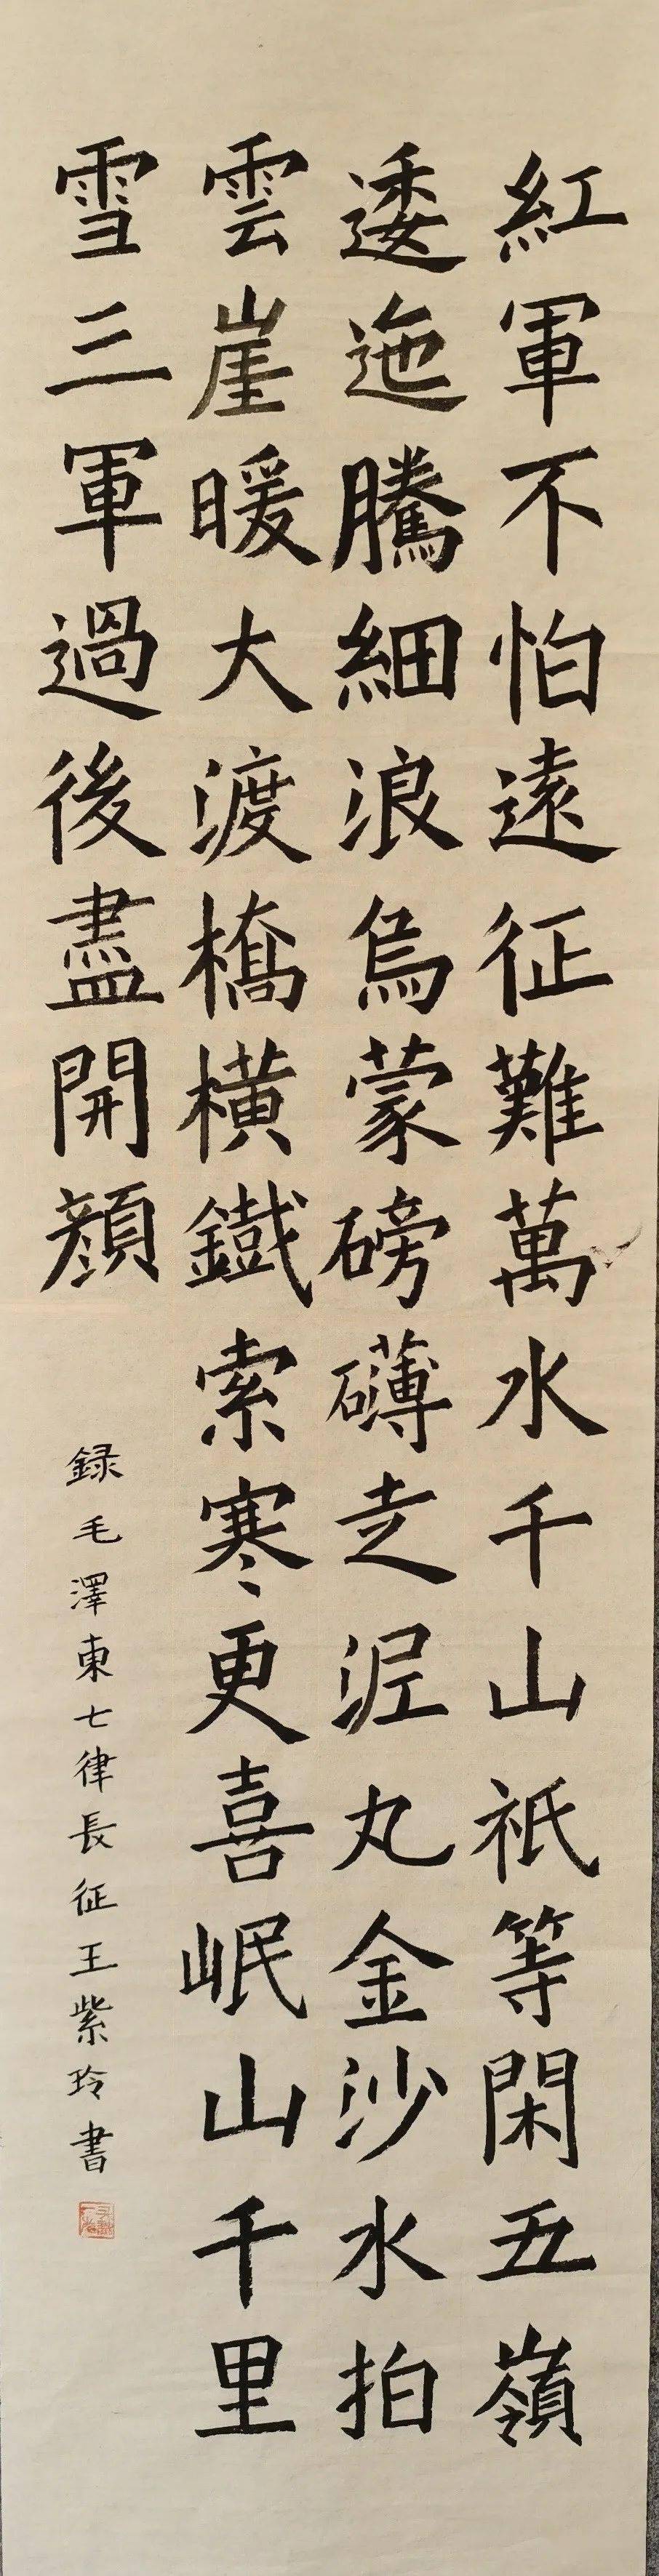 紅軍不怕遠征難萬水千山祇等閑五嶺
逶迤騰細浪烏蒙磅礴走泥丸金沙水拍
雲崖暖大渡橋橫鐵索寒更喜岷山千里
雪三軍過後盡開顏
録毛澤東七律長征王紫玲書